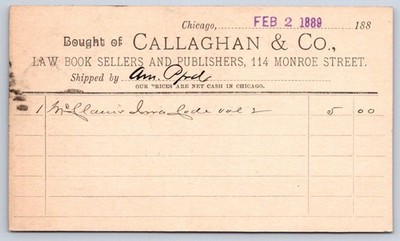 Chicago, FEB 2 1889 188
Bought of CALLAGHAN & CO.,
LAW BOOK SELLERS AND PUBLISHERS, 114 MONROE STREET.
Shipped by Am. Ppd
OUR PRICES ARE NET CASH IN CHICAGO.
1 McClain's Iowa Code vol 2 5 00